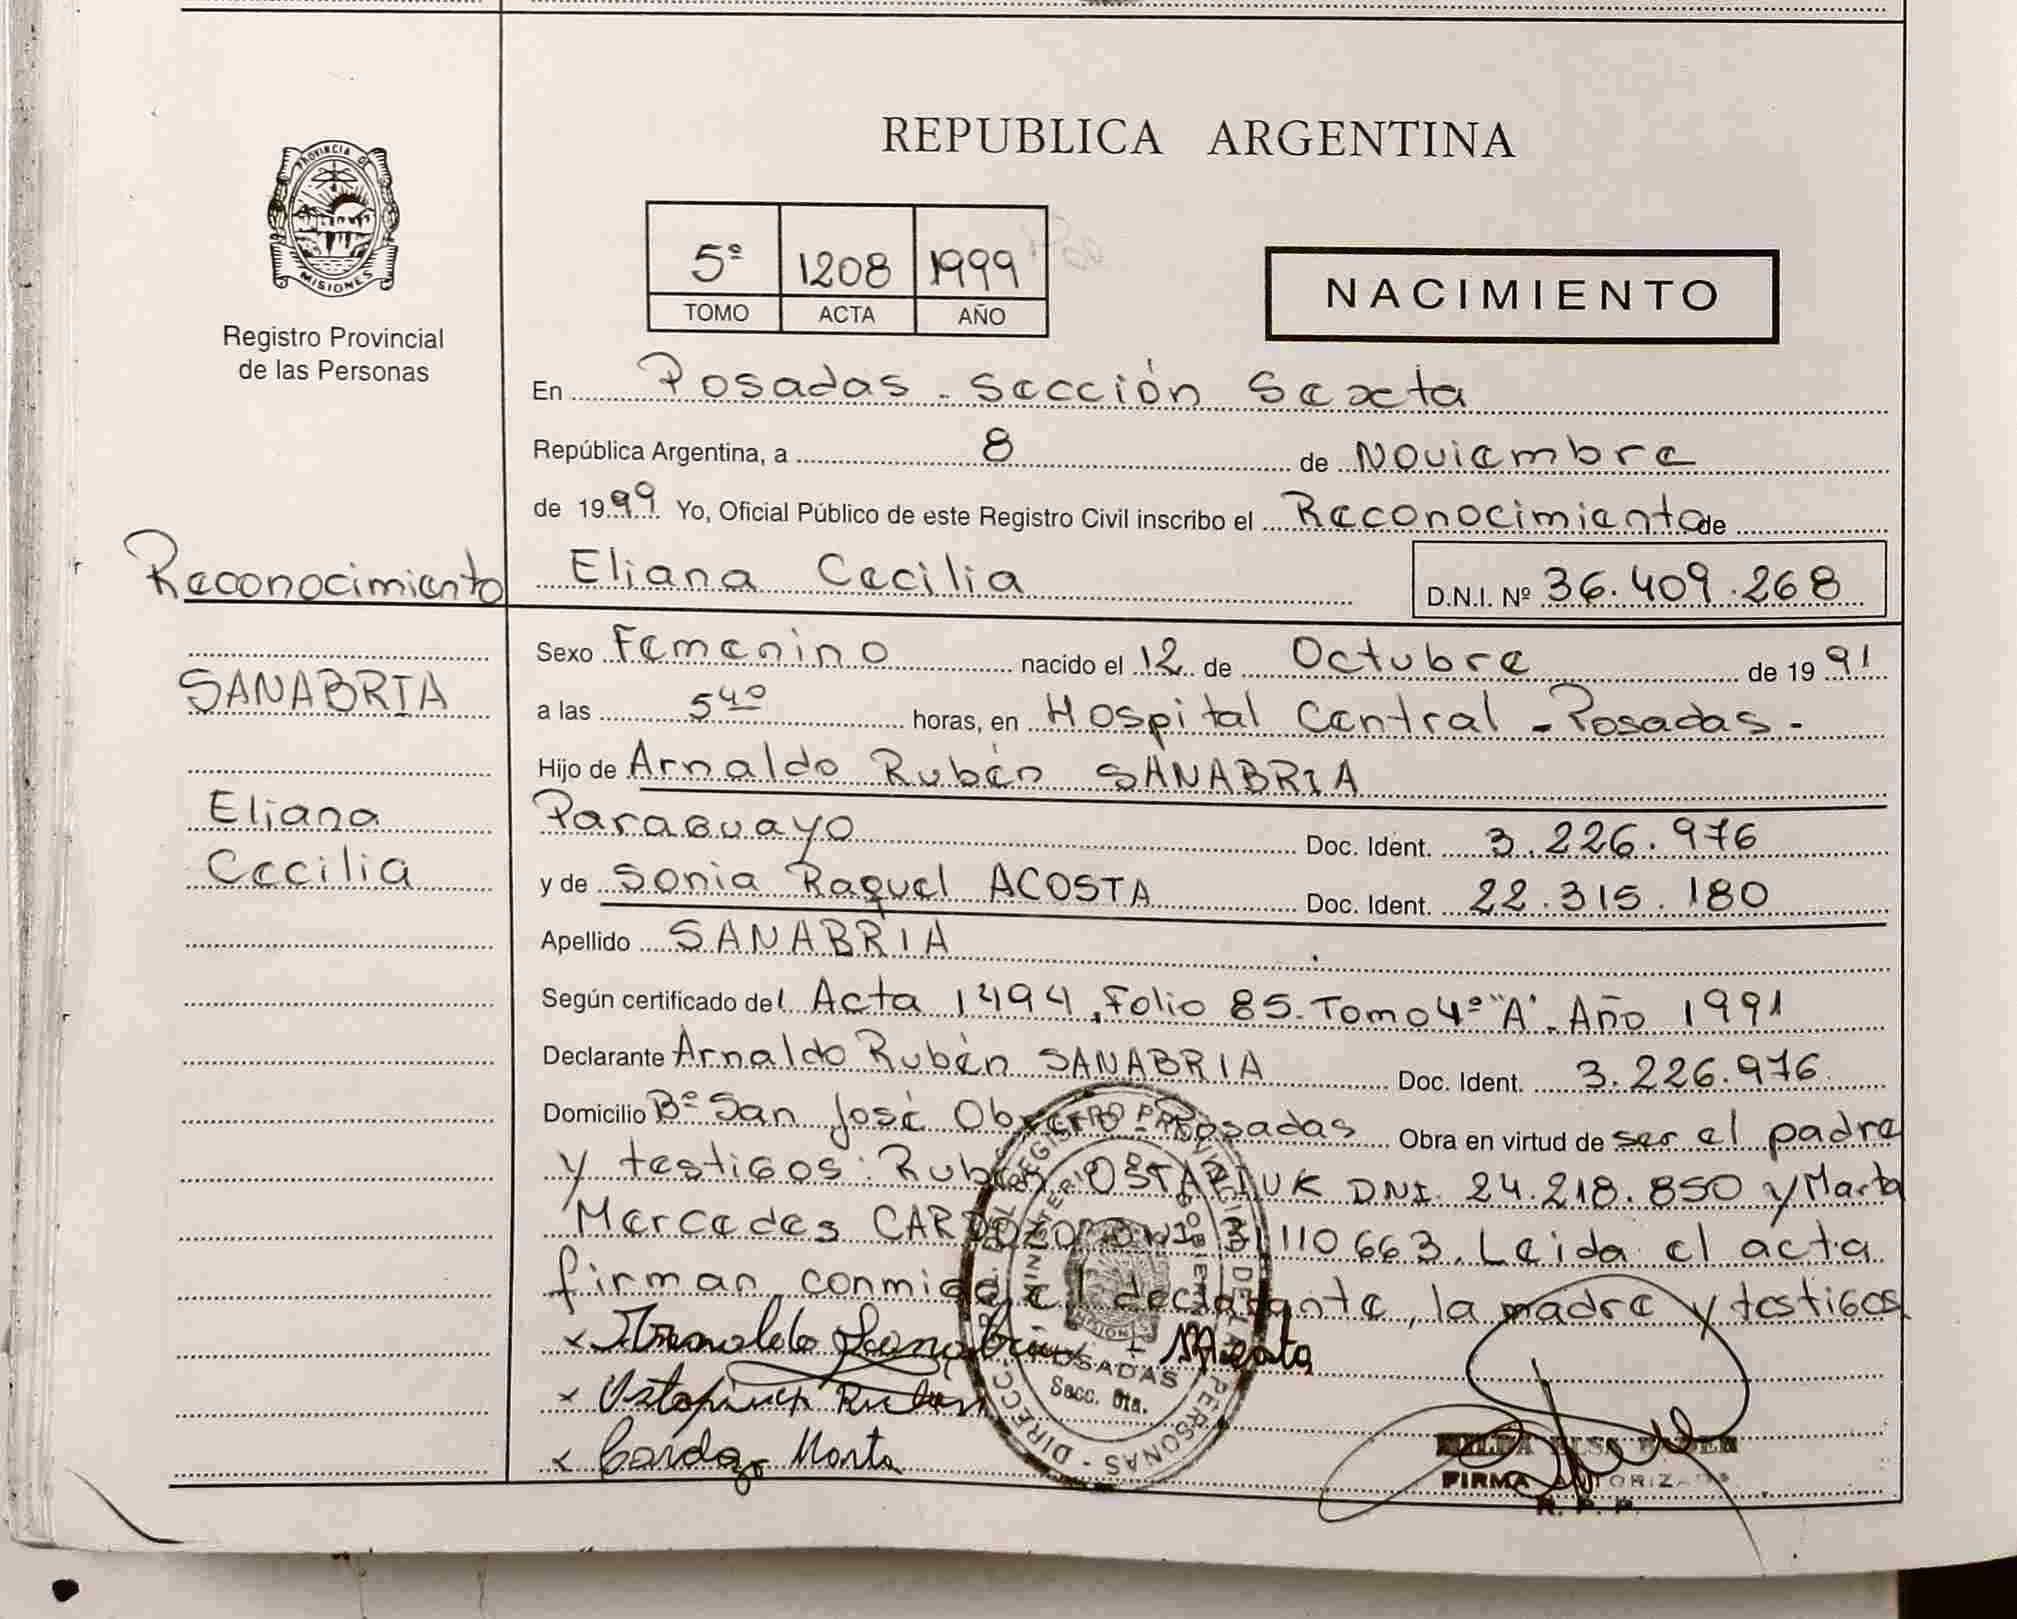 REPUBLICA ARGENTINA
PROVINCIA DE
MISIONES
Registro Provincial
de las Personas
5º 1208 1999
TOMO ACTA AÑO
NACIMIENTO
En Posadas - Sección Sexta
República Argentina, a 8 de Noviembre
de 1999 Yo, Oficial Público de este Registro Civil inscribo el Reconocimiento de
Eliana Cecilia D.N.I. Nº 36.409.268
Reconocimiento
SANABRIA
Eliana
Cecilia
Sexo Femenino nacido el 12 de Octubre de 1991
a las 5 40 horas, en Hospital Central - Posadas -
Hijo de Arnaldo Rubén SANABRIA
Paraguayo Doc. Ident. 3.226.976
y de Sonia Raquel ACOSTA Doc. Ident. 22.315.180
Apellido SANABRIA
Según certificado del Acta 1494, Folio 85. Tomo 4º "A". Año 1991
Declarante Arnaldo Rubén SANABRIA Doc. Ident. 3.226.976
Domicilio Bº San José Obrero Posadas Obra en virtud de ser el padre
y testigos: Rubén DNI. 24.218.850 y Marta
Mercedes CARDOZO DNI 3.110663. Leida el acta
firman conmigo el declarante, la madre y testigos
Arnaldo Sanabria
Rubén
Cardozo Marta
DIRECC. DEL REGISTRO PROVINCIAL DE LAS PERSONAS -
MINISTERIO DE GOBIERNO
MISIONES
POSADAS
Secc. 6ta.
FIRMA AUTORIZADA
R. P. P.